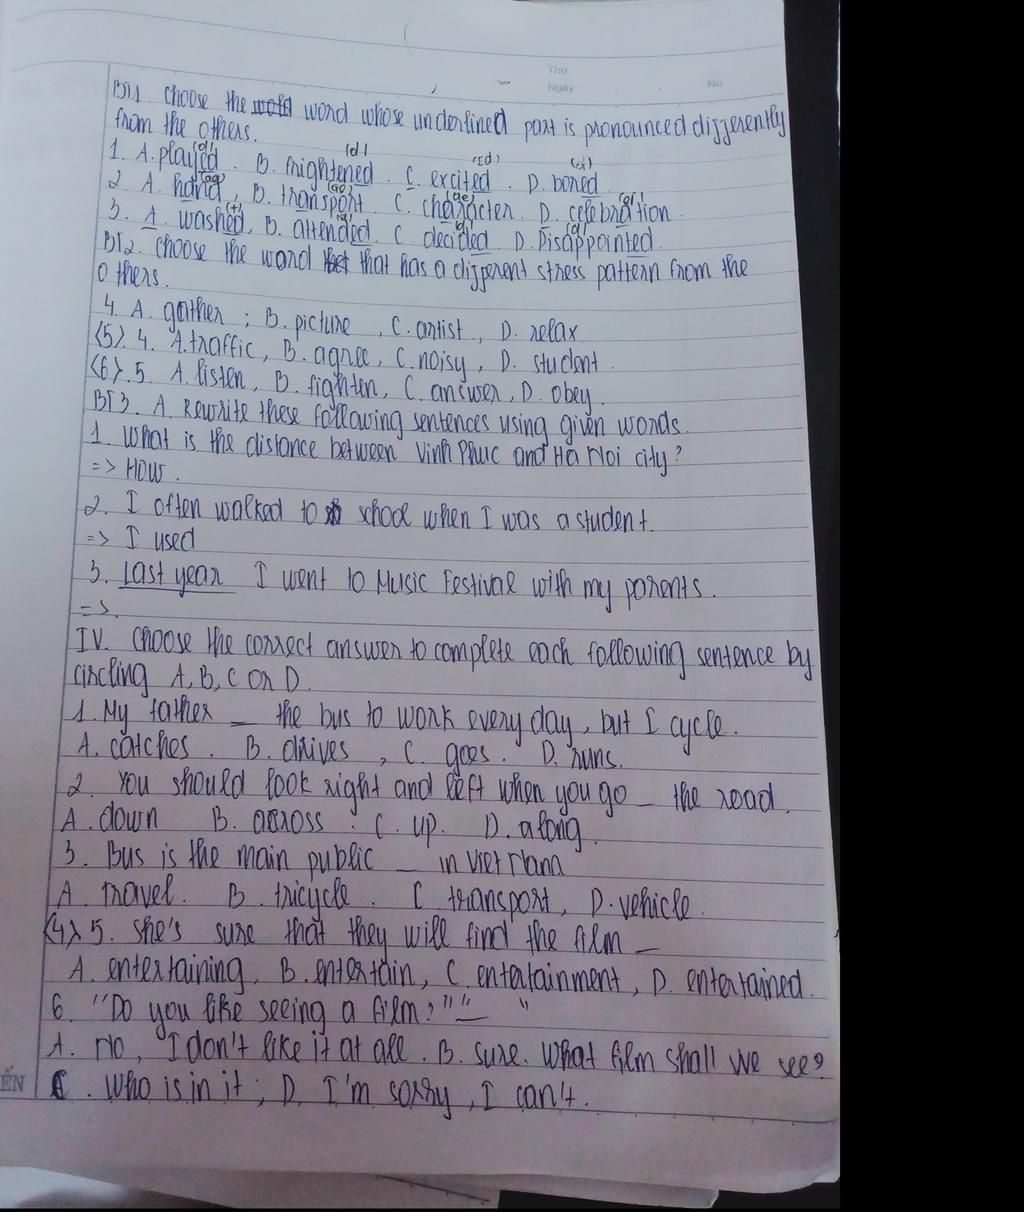 Thứ
Ngày No
BT1. Choose the world word whose underlined part is pronounced differently
from the others.
(d) (d) (Id) (d)
1. A. played. B. frightened. C. excited. D. bored
(ae) (ae) (ae) (ei)
2. A. hand, B. transport C. character. D. celebration.
(t) (d) (d) (d)
3. A. washed, B. attended. C. decided D. Disappointed.
BT2. Choose the word that has a different stress pattern from the
others.
4. A. gather; B. picture, C. artist, D. relax
<5>. 4. A. traffic, B. agree, C. noisy, D. student.
<6>. 5. A. listen, B. fighten, C. answer, D. obey.
BT3. A. Rewrite these following sentences using given words.
1. What is the distance between Vinh Phuc and Ha Noi city?
=> How.
2. I often walked to school when I was a student.
=> I used
3. Last year I went to Music Festival with my parents.
=>.
IV. Choose the correct answer to complete each following sentence by
circling A, B, C or D.
1. My father _ the bus to work every day, but I cycle.
A. catches. B. drives, C. goes. D. runs.
2. You should look right and left when you go _ the road.
A. down B. across. C. up. D. along.
3. Bus is the main public _ in Viet Nam
A. travel. B. tricycle. C transport, D. vehicle.
<4> 5. She's sure that they will find the film _
A. entertaining, B. entertain, C. entertainment, D. entertained.
6. "Do you like seeing a film?" "_ "
A. No, I don't like it at all. B. Sure. What film shall we see?
ẾN C. Who is in it; D. I'm sorry, I can't.